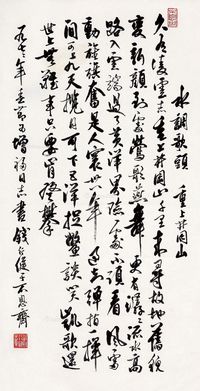 水調歌頭
重上井岡山
久有凌雲志重上井岡山千里來尋故地舊貌
變新顏到處鶯歌燕舞更有潺潺流水高
路入雲端過了黃洋界險處不須看風雷
動旌旗奮是人寰卅八年過去彈指一揮
間可上九天攬月可下五洋捉鱉談笑凱歌還
世上無難事只要肯登攀
年春節為增福同志書